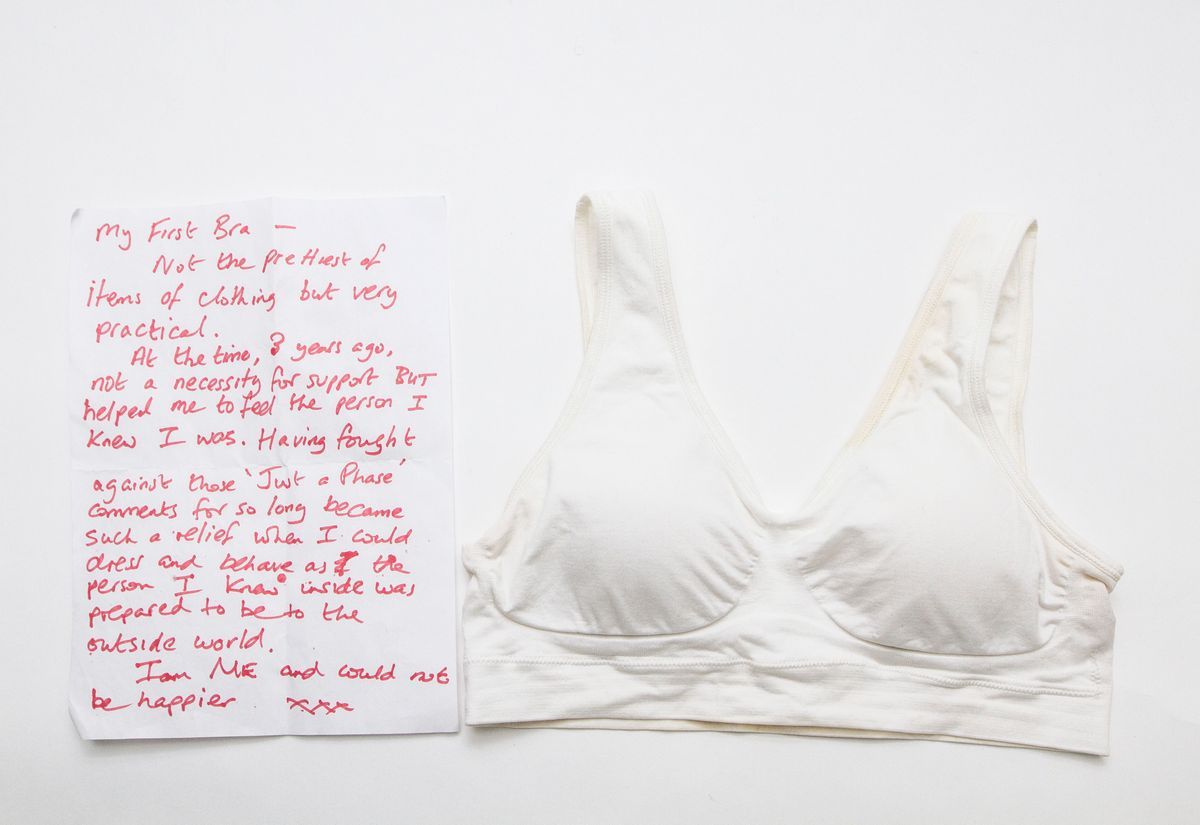 My First Bra –
Not the prettiest of
items of clothing but very
practical.
At the time, 3 years ago,
not a necessity for support BUT
helped me to feel the person I
knew I was. Having fought
against those 'Just a Phase'
comments for so long became
such a relief when I could
dress and behave as the
person I knew inside was
prepared to be to the
outside world.
I am ME and could not
be happier xxxx